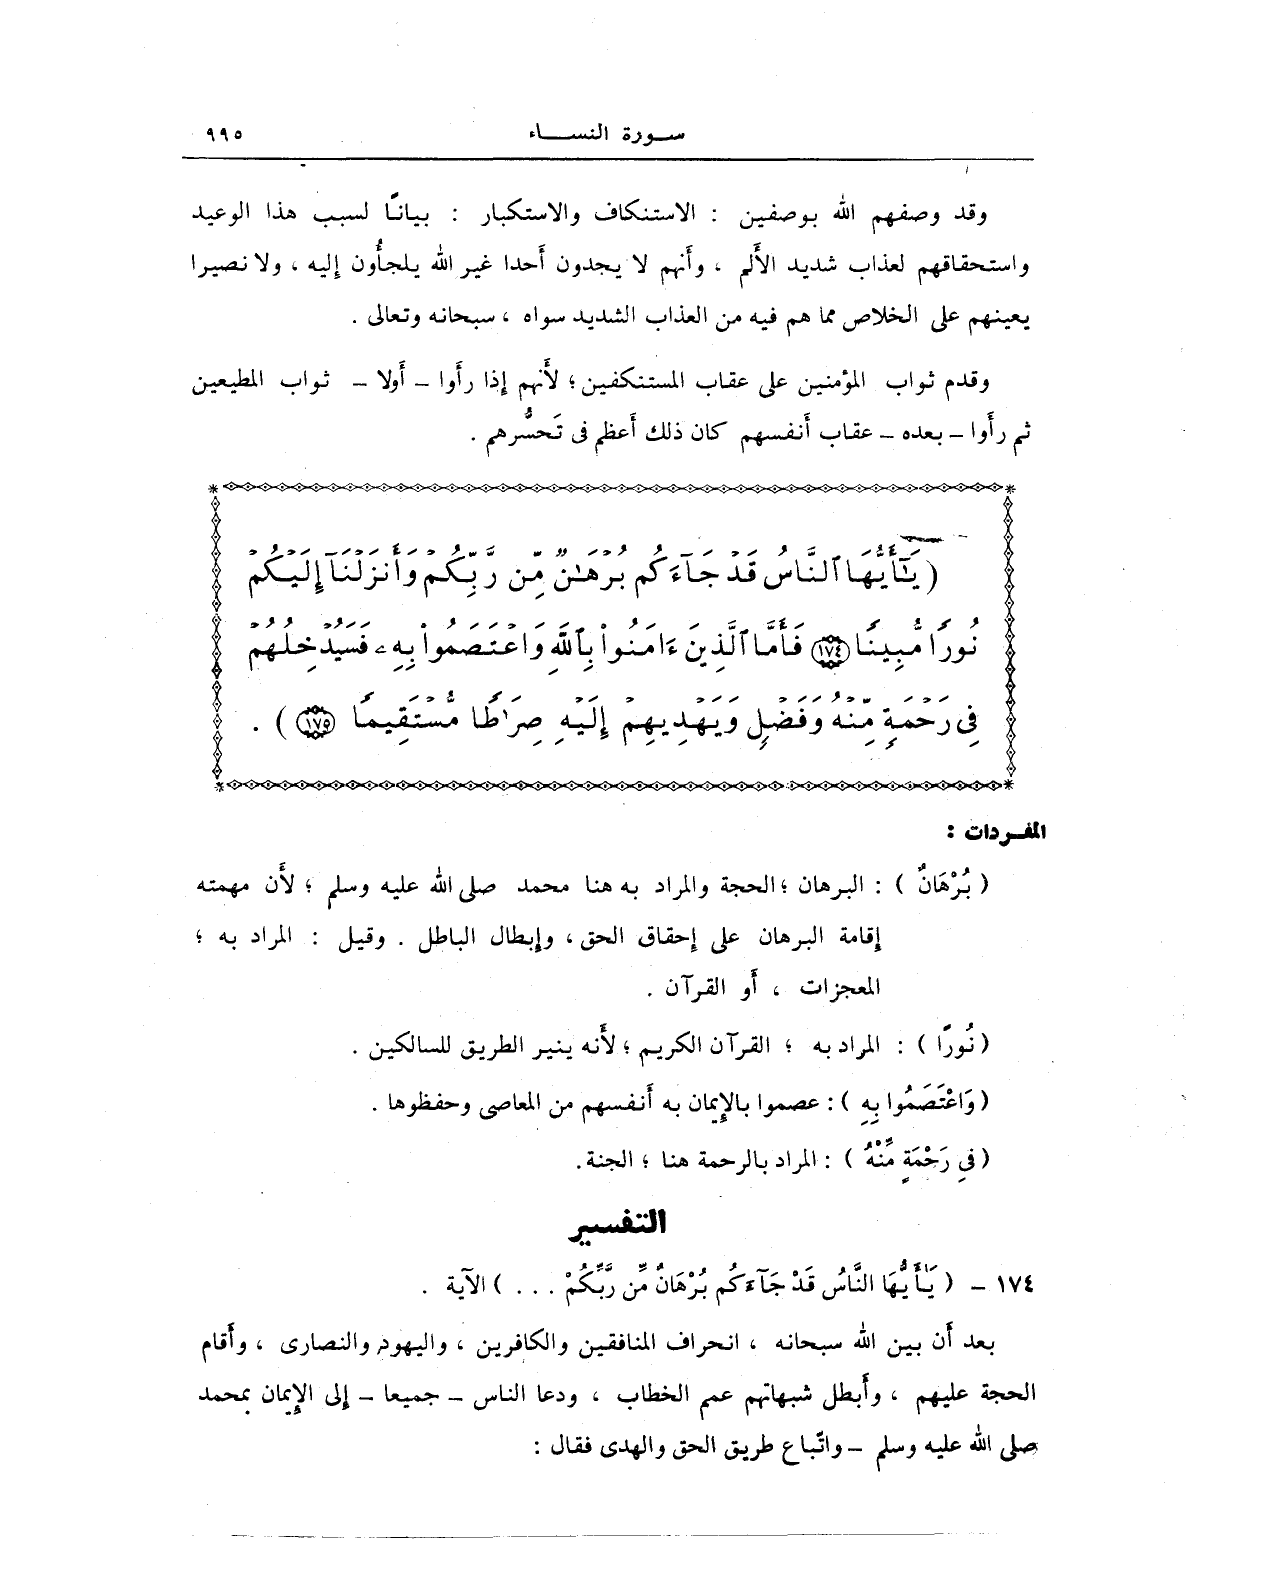 سورة النساء ٩٩٥
وقد وصفهم الله بوصفين : الاستنكاف والاستكبار : بيانًا لسبب هذا الوعيد
واستحقاقهم لعذاب شديد الألم ، وأنهم لا يجدون أحدا غير الله يلجأُون إليه ، ولا نصيرا
يعينهم على الخلاص مما هم فيه من العذاب الشديد سواه ، سبحانه وتعالى .
وقدم ثواب المؤمنين على عقاب المستنكفين ؛ لأنهم إذا رأوا – أولا – ثواب المطيعين
ثم رأوا – بعده – عقاب أنفسهم كان ذلك أعظم فى تَحسُّرهم .
( يَٰٓأَيُّهَا ٱلنَّاسُ قَدْ جَآءَكُم بُرْهَٰنٌ مِّن رَّبِّكُمْ وَأَنزَلْنَآ إِلَيْكُمْ
نُورًا مُّبِينًا ﴿١٧٤﴾ فَأَمَّا ٱلَّذِينَ ءَامَنُوا۟ بِٱللَّهِ وَٱعْتَصَمُوا۟ بِهِۦ فَسَيُدْخِلُهُمْ
فِى رَحْمَةٍ مِّنْهُ وَفَضْلٍ وَيَهْدِيهِمْ إِلَيْهِ صِرَٰطًا مُّسْتَقِيمًا ﴿١٧٥﴾ ) .
المفردات :
( بُرْهَانٌ ) : البرهان ؛ الحجة والمراد به هنا محمد صلى الله عليه وسلم ؛ لأن مهمته
إقامة البرهان على إحقاق الحق ، وإبطال الباطل . وقيل : المراد به ؛
المعجزات ، أو القرآن .
( نُورًا ) : المراد به ؛ القرآن الكريم ؛ لأنه ينير الطريق للسالكين .
( وَاعْتَصَمُوا بِهِ ) : عصموا بالإيمان به أنفسهم من المعاصى وحفظوها .
( فِى رَحْمَةٍ مِّنْهُ ) : المراد بالرحمة هنا ؛ الجنة .
التفسير
١٧٤ – ( يَٰٓأَيُّهَا النَّاسُ قَدْ جَآءَكُم بُرْهَانٌ مِّن رَّبِّكُمْ . . . ) الآية .
بعد أن بين الله سبحانه ، انحراف المنافقين والكافرين ، واليهود والنصارى ، وأقام
الحجة عليهم ، وأبطل شبهاتهم عمم الخطاب ، ودعا الناس – جميعا – إلى الإيمان بمحمد
صلى الله عليه وسلم – واتّباع طريق الحق والهدى فقال :